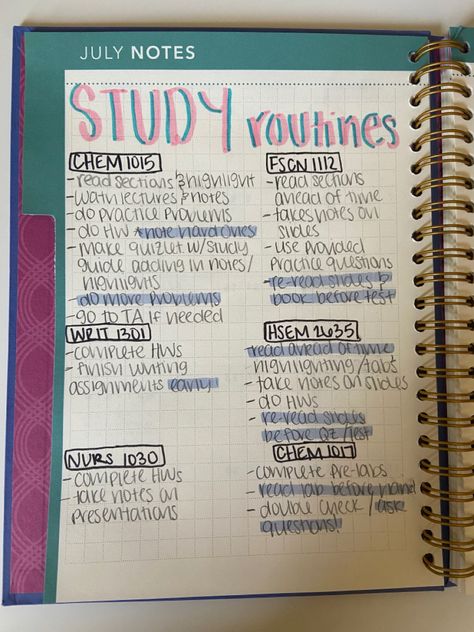 JULY NOTES
STUDY routines
CHEM 1015
- read sections & highlight
- watch lectures & notes
- do practice problems
- do HW *note hard ones
- make quizlet w/study
guide adding in notes/
highlights
- do more problems
- go to TA if needed
WRIT 1301
- complete HWs
- finish writing
assignments early
NURS 1030
- complete HWs
- take notes on
presentations
FSCN 1112
- read sections
ahead of time
- takes notes on
slides
- use provided
practice questions
- re-read slides &
book before test
HSEM 2635
- read ahead of time
highlighting/tabs
- take notes on slides
- do HWs
- re-read slides
before QZ/test
CHEM 1017
- complete pre-labs
- read lab before hand
- double check / ask
questions!